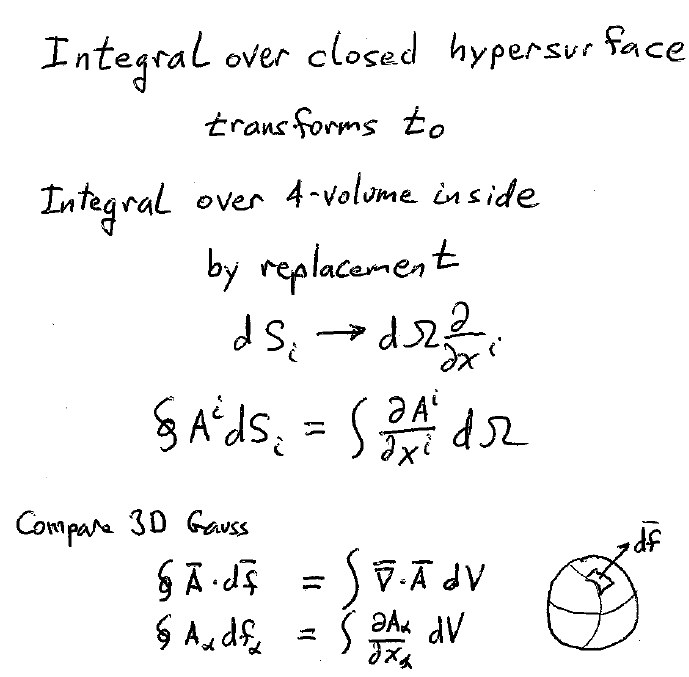 Integral over closed hypersurface
transforms to
Integral over 4-volume inside
by replacement
dSᵢ → dΩ ∂/∂xⁱ
∮ AⁱdSᵢ = ∫ ∂Aⁱ/∂xⁱ dΩ
Compare 3D Gauss
∮ A̅·df̅ = ∫ ∇̅·A̅ dV
∮ A_α df_α = ∫ ∂A_α/∂x_α dV
df̅